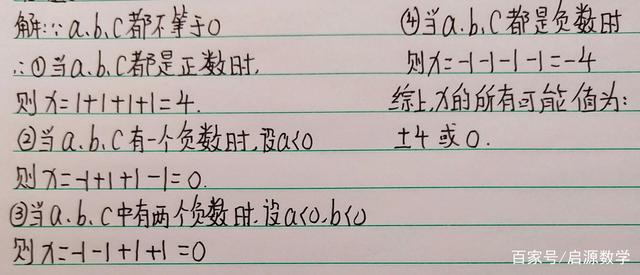 解:∵a、b、c都不等于0
∴①当a、b、c都是正数时,
则x=1+1+1+1=4.
②当a、b、c有一个负数时,设a<0
则x=-1+1+1-1=0.
③当a、b、c中有两个负数时,设a<0,b<0
则x=-1-1+1+1=0
④当a、b、c都是负数时
则x=-1-1-1-1=-4
综上,x的所有可能值为:
±4或0.
百家号/启源数学